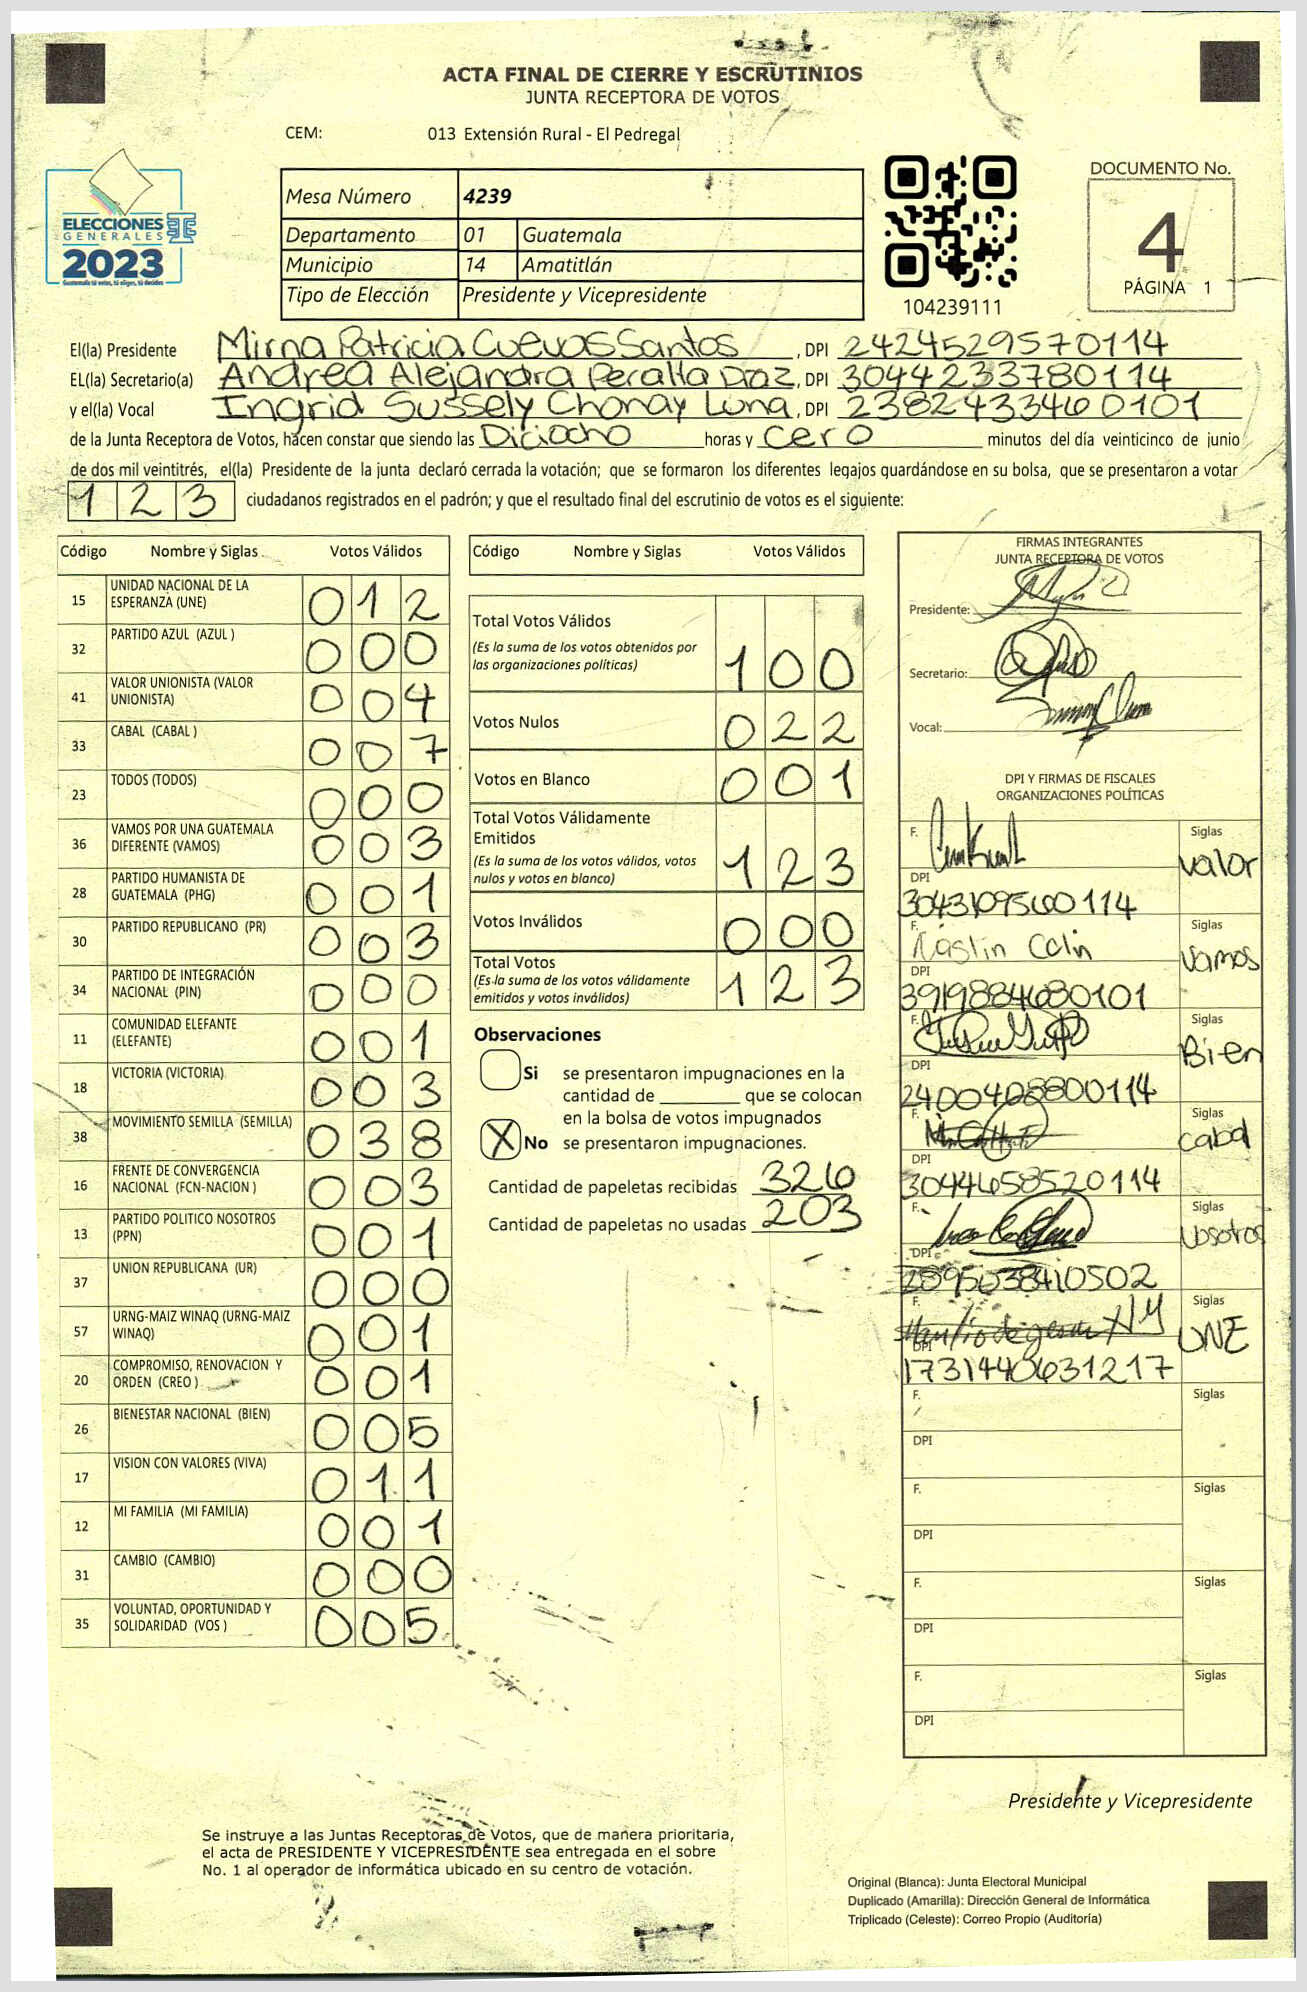 ACTA FINAL DE CIERRE Y ESCRUTINIOS
JUNTA RECEPTORA DE VOTOS
CEM: 013 Extensión Rural - El Pedregal
ELECCIONES
GENERALES
2023
Mesa Número 4239
Departamento 01 Guatemala
Municipio 14 Amatitlán
Tipo de Elección Presidente y Vicepresidente
104239111
DOCUMENTO No.
4
PÁGINA 1
El(la) Presidente Mirna Patricia Cuevas Santos, DPI 2424529570114
EL(la) Secretario(a) Andrea Alejandra Peralta Diaz, DPI 3044233780114
y el(la) Vocal Ingrid Sussely Chonay Luna, DPI 2382433460101
de la Junta Receptora de Votos, hacen constar que siendo las Diciocho horas y cero minutos del día veinticinco de junio
de dos mil veintitrés, el(la) Presidente de la junta declaró cerrada la votación; que se formaron los diferentes legajos quardándose en su bolsa, que se presentaron a votar
123 ciudadanos registrados en el padrón; y que el resultado final del escrutinio de votos es el siguiente:
Código Nombre y Siglas Votos Válidos
15 UNIDAD NACIONAL DE LA ESPERANZA (UNE) 012
32 PARTIDO AZUL (AZUL ) 000
41 VALOR UNIONISTA (VALOR UNIONISTA) 004
33 CABAL (CABAL ) 007
23 TODOS (TODOS) 000
36 VAMOS POR UNA GUATEMALA DIFERENTE (VAMOS) 003
28 PARTIDO HUMANISTA DE GUATEMALA (PHG) 001
30 PARTIDO REPUBLICANO (PR) 003
34 PARTIDO DE INTEGRACIÓN NACIONAL (PIN) 000
11 COMUNIDAD ELEFANTE (ELEFANTE) 001
18 VICTORIA (VICTORIA) 003
38 MOVIMIENTO SEMILLA (SEMILLA) 038
16 FRENTE DE CONVERGENCIA NACIONAL (FCN-NACION ) 003
13 PARTIDO POLITICO NOSOTROS (PPN) 001
37 UNION REPUBLICANA (UR) 000
57 URNG-MAIZ WINAQ (URNG-MAIZ WINAQ) 001
20 COMPROMISO, RENOVACION Y ORDEN (CREO ) 001
26 BIENESTAR NACIONAL (BIEN) 005
17 VISION CON VALORES (VIVA) 011
12 MI FAMILIA (MI FAMILIA) 001
31 CAMBIO (CAMBIO) 000
35 VOLUNTAD, OPORTUNIDAD Y SOLIDARIDAD (VOS ) 005
Código Nombre y Siglas Votos Válidos
Total Votos Válidos
(Es la suma de los votos obtenidos por
las organizaciones políticas) 100
Votos Nulos 022
Votos en Blanco 001
Total Votos Válidamente
Emitidos
(Es la suma de los votos válidos, votos
nulos y votos en blanco) 123
Votos Inválidos 000
Total Votos
(Es la suma de los votos válidamente
emitidos y votos inválidos) 123
Observaciones
Si se presentaron impugnaciones en la
cantidad de ________ que se colocan
en la bolsa de votos impugnados
X No se presentaron impugnaciones.
Cantidad de papeletas recibidas 326
Cantidad de papeletas no usadas 203
FIRMAS INTEGRANTES
JUNTA RECEPTORA DE VOTOS
Presidente:
Secretario:
Vocal:
DPI Y FIRMAS DE FISCALES
ORGANIZACIONES POLÍTICAS
F. Siglas valor
DPI 3043109560114
F. Siglas Vamos
DPI 3919884680101
F. Siglas Bien
DPI 2400408800114
F. Siglas cabal
DPI 3044658520114
F. Siglas Nosotros
DPI 2895038410502
F. Siglas UNE
DPI 1731440631217
F. Siglas
DPI
F. Siglas
DPI
F. Siglas
DPI
F. Siglas
DPI
Presidente y Vicepresidente
Se instruye a las Juntas Receptoras de Votos, que de manera prioritaria,
el acta de PRESIDENTE Y VICEPRESIDENTE sea entregada en el sobre
No. 1 al operador de informática ubicado en su centro de votación.
Original (Blanca): Junta Electoral Municipal
Duplicado (Amarilla): Dirección General de Informática
Triplicado (Celeste): Correo Propio (Auditoría)